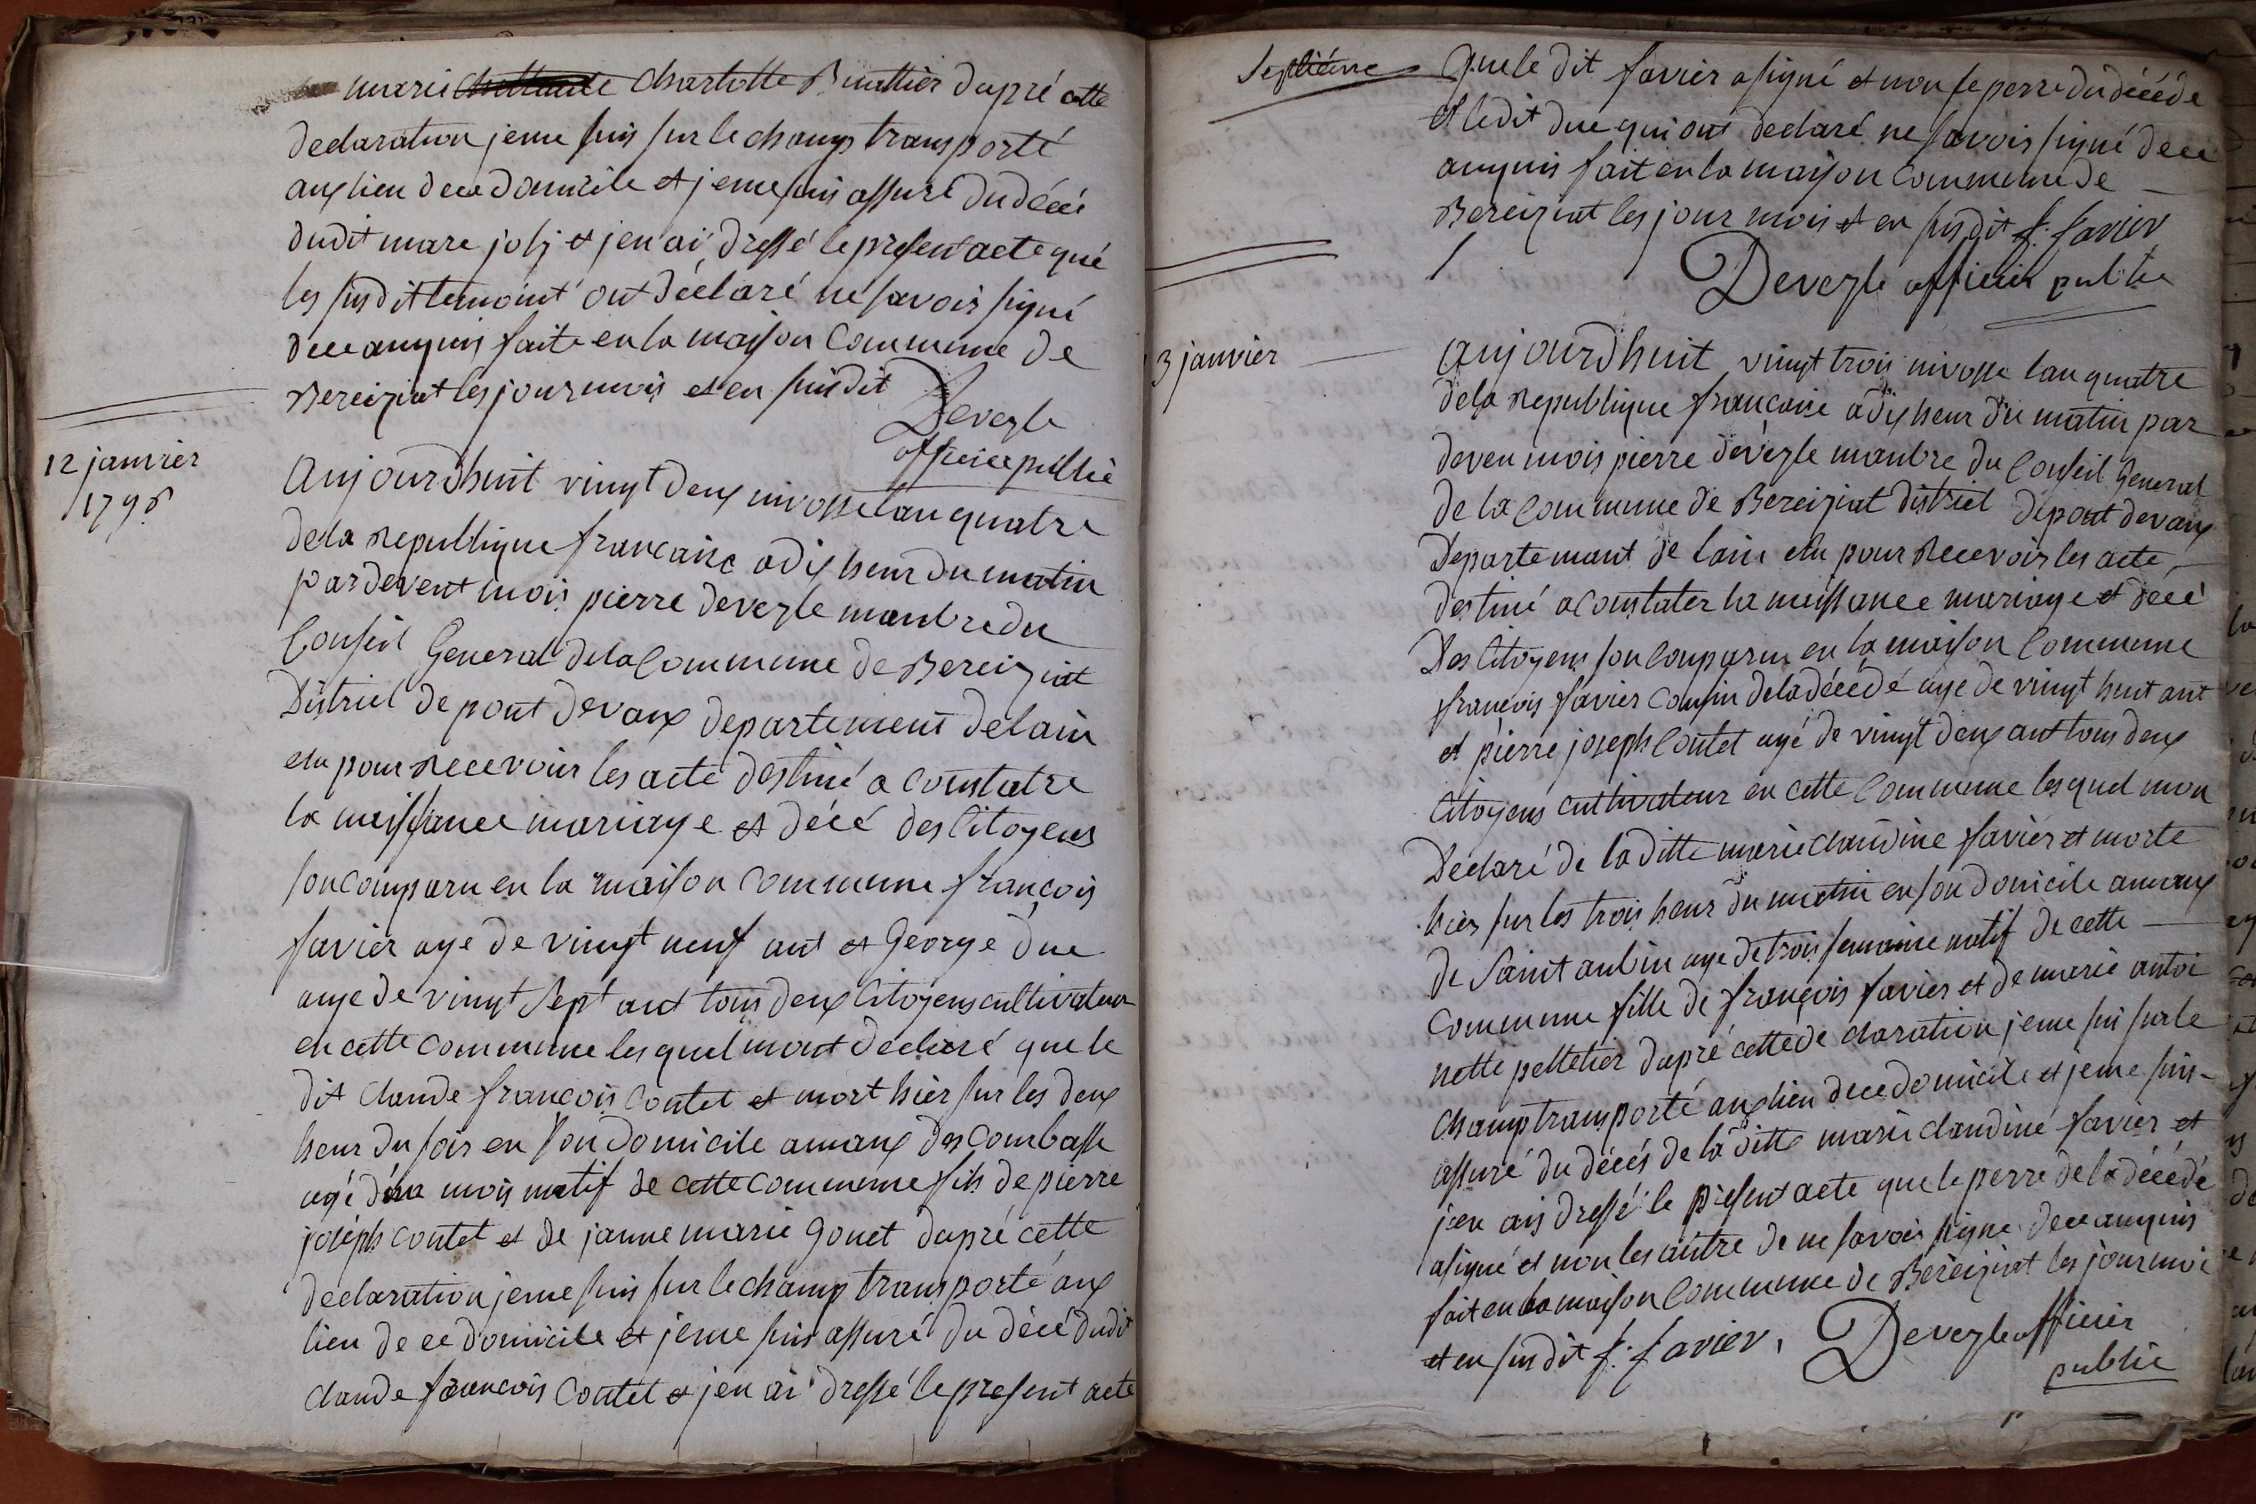 marie Charlotte Buathier dapré cette
declaration jeme suis sur le champ transporté
aux lien dece domicile et jeme suis assuré du décé
dudit marc joly et jen ai dressé le present acte qué
les susdit temoint ont déclaré ne savoir signé
dece anquis faite en la maison Commune de
Bereiziat les jour mois et en susdit
Devezle
officie public
12 janvier
1796
Aujourdhuit vingt deux nivosse lan quatre
dela Republique francaise a dix heur du matin
par devent mois pierre devezle manbre du
Conseil General dela Commune de Bereiziat
District de pont devaux departement delain
elu pour Recevoir les acte destiné a constatre
la naissance mariage et décé des Citoyens
son comparu en la maison commune francois
favier age de vingt neuf ant et George due
auge de vingt sept ant tous deux Citoyens cultivateur
en cette commune les quel mont declaré que le
dit claude francois Contet et mort hier sur les deux
heur du soir en son domicile amaux des Combasse
agé dun mois natif de cette commune fils de pierre
joseph contet et de janne marie gonet dapré cette
declaration jeme suis sur le champ transporté aux
lien de ce domicile et jeme suis assuré du décé dudit
claude francois Contet et jen ai dressé le present acte
Septiéme
que le dit favier a signé et non le perre du décédé
et ledit due qui ont declaré ne savoir signé dece
anquis fait en la maison commune de
Bereiziat les jour mois et en susdit f: favier
Devezle officier public
3 janvier
Aujourdhuit vingt trois nivosse lan quatre
dela Republique francaise a dix heur du matin par
deven mois pierre devezle manbre du Conseil General
de la Commune de Bereiziat district de pont devaux
Departemant de lain elu pour Recevoir les acte
destiné a constater la naissance mariage et décé
Des Citoyens son comparu en la maison Commune
francois favier Cousin dela décédé age de vingt huit ant
et pierre joseph Contet agé de vingt deux ant tous deux
Citoyens cultivateur en cette Commune les quel mon
Declaré de la ditte marie claudine favier et morte
hier sur les trois heur du matin en son domicile amaux
de Saint aubin age de trois semaine natif de cette
commune fille de françois favier et de marie antoi
nette pelletier dapré cette de claration jeme sui sur le
champ transporté aux lien dece domicile et jeme suis
assuré du décés de la ditte marie claudine favier et
jen ais dressé le present acte que le perre de la décédé
a signé et non les autre de ne savoir signe dece anquis
fait en la maison Commune de Bereiziat les jour moi
et en susdit f: favier, Devezle officier
public